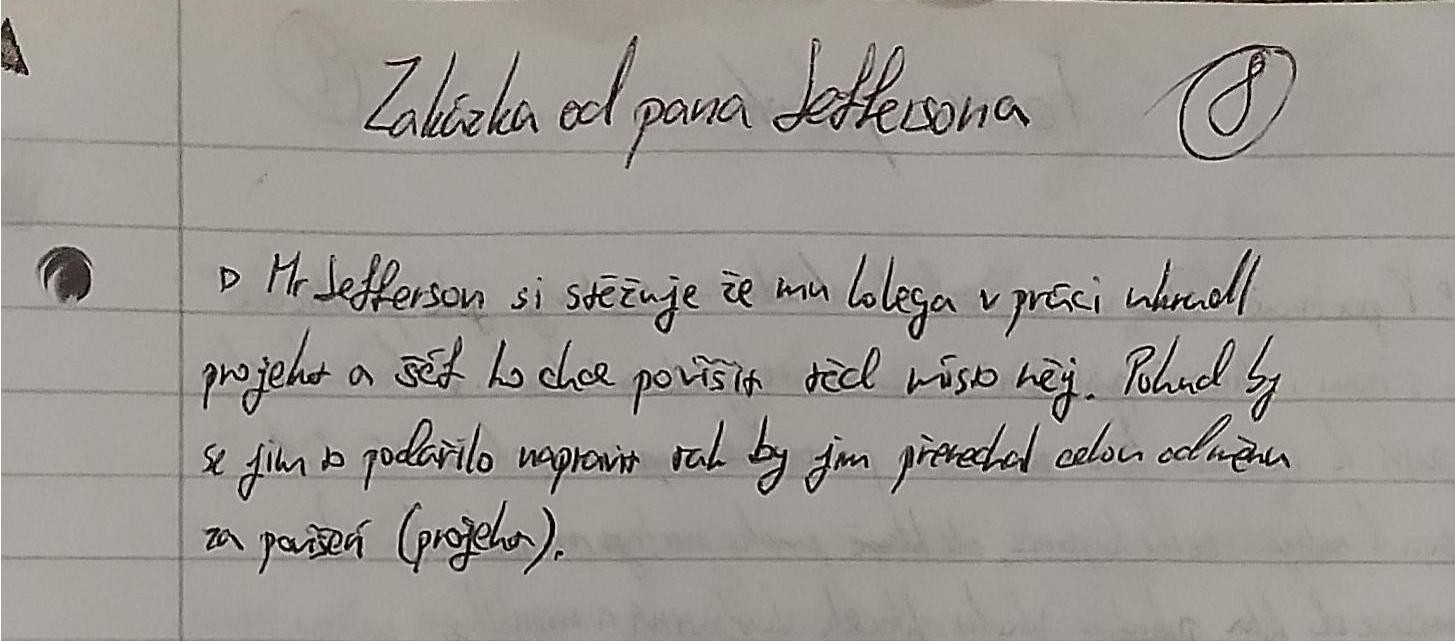 Zakázka od pana Jeffersona 8
▷ Mr Jefferson si stěžuje že mu kolega v práci ukradl
projekt a šéf ho chce povýšit teď místo něj. Pokud by
se jim to podařilo napravit tak by jim přenechal celou odměnu
za povýšení (projekt).